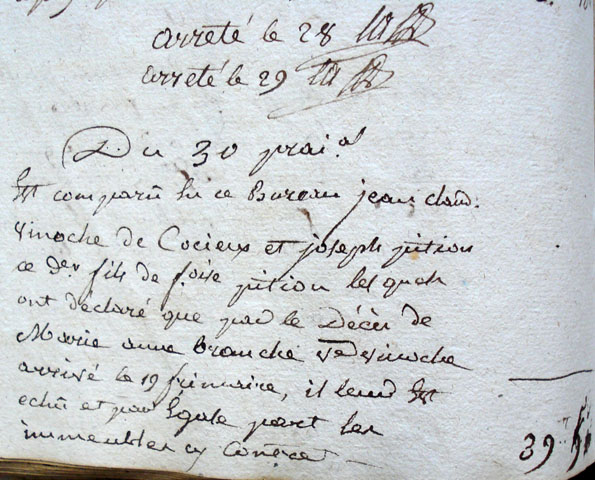 arreté le 28
arreté le 29
Du 30 prai.al
Est comparu en ce Bureau jean claud.
vinoche de Cocieux et joseph jution
ce der fils de foise jution lesquels
ont déclaré que par le Décès de
Marie anne branche ve vinoche
arrivé le 19 frimaire, il leur Est
echu et par Egale part les
immeubles cy Contre
39